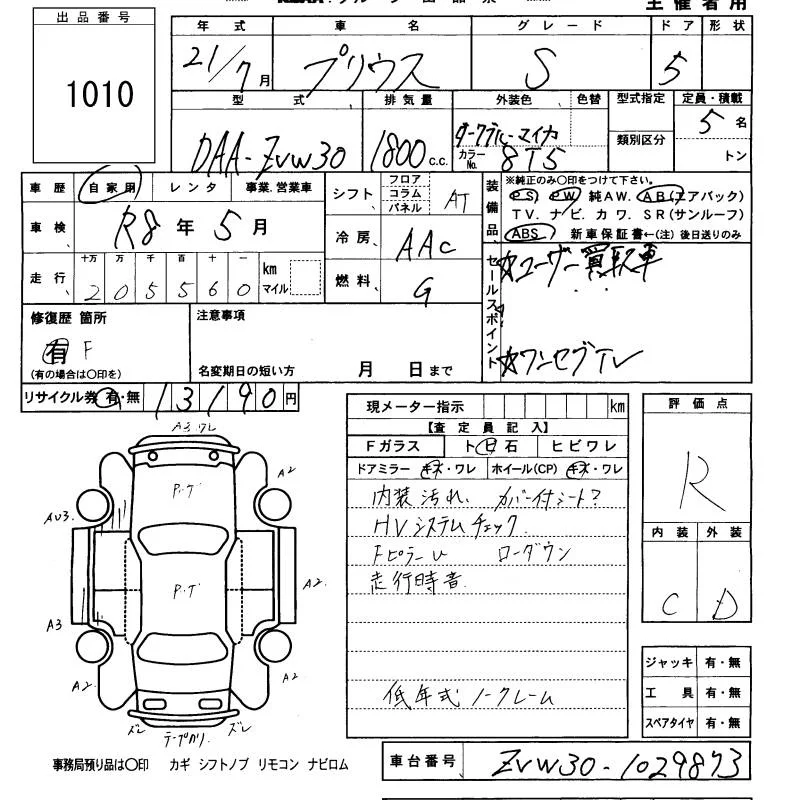 主催者用
出品番号
1010
年式 車名 グレード ドア 形状
21/7月 プリウス S 5
型式 排気量 外装色 色替 型式指定 定員・積載
DAA-ZVW30 1800c.c. ダークブルーマイカ カラーNo. 8T5 類別区分 5名 トン
車歴 自家用 レンタ 事業.営業車
シフト フロア コラム パネル AT
装備品 ※純正のみ〇印をつけて下さい。
PS. PW. 純AW. AB(エアバック)
TV. ナビ. カワ. SR(サンルーフ)
ABS 新車保証書←(注) 後日送りのみ
車検 R8年5月
冷房 AAC
走行 十万 万 千 百 十 一 km マイル
205560
燃料 G
セールスポイント
☆ユーザー買取車
☆ワンセグTV
修復歴 箇所
有 F
(有の場合は〇印を)
注意事項
名変期日の短い方 月 日まで
リサイクル券 有・無 13190円
現メーター指示 km
評価点
R
【査定員記入】
Fガラス ト ヒ 石 ヒビワレ
ドアミラー キズ・ワレ ホイール(CP) キズ・ワレ
内装汚れ. カバー付シート?
HVシステムチェック.
Fピラーu ローダウン
走行時音.
低年式ノークレーム
内装 外装
C D
A3.ワレ
P.ゲ
A2
AU3.
P.ゲ
A2.
A3
A2.
A2.
ズレ テープのり ズレ
ジャッキ 有・無
工具 有・無
スペアタイヤ 有・無
事務局預り品は〇印 カギ シフトノブ リモコン ナビロム
車台番号 ZVW30-1029873